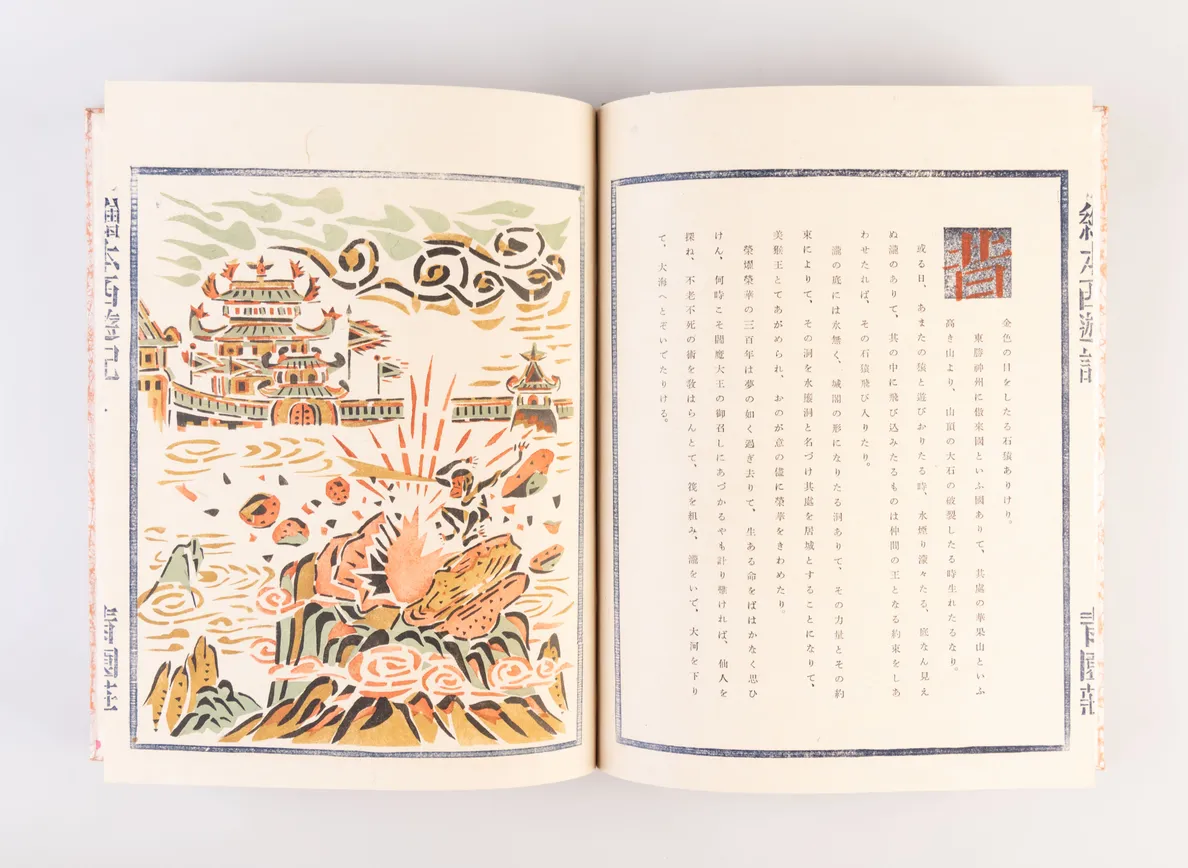 繪本西遊記
青園荘
昔
金色の目をしたる石猿ありけり。
東勝神州に傲來國といふ國ありて、其處の華果山といふ
高き山より、山頂の大石の破裂したる時生れたるなり。
或る日、あまたの猿と遊びおりたる時、水煙り濛々たる、底なん見え
ぬ瀧のありて、其の中に飛び込みたるものは仲間の王となる約束をしあ
わせたれば、その石猿飛び入りたり。
瀧の底には水無く、城閣の形になりたる洞ありて、その力量とその約
束によりて、その洞を水簾洞と名づけ其處を居城とすることになりて、
美猴王とてあがめられ、おのが意の儘に榮華をきわめたり。
榮耀榮華の三百年は夢の如く過ぎ去りて、生ある命をばはかなく思ひ
けん、何時こそ閻魔大王の御召しにあづかるやも計り難ければ、仙人を
探ね、不老不死の術を敎はらんとて、筏を組み、瀧をいで、大河を下り
て、大海へとぞいでたりける。
繪本西遊記
青園荘